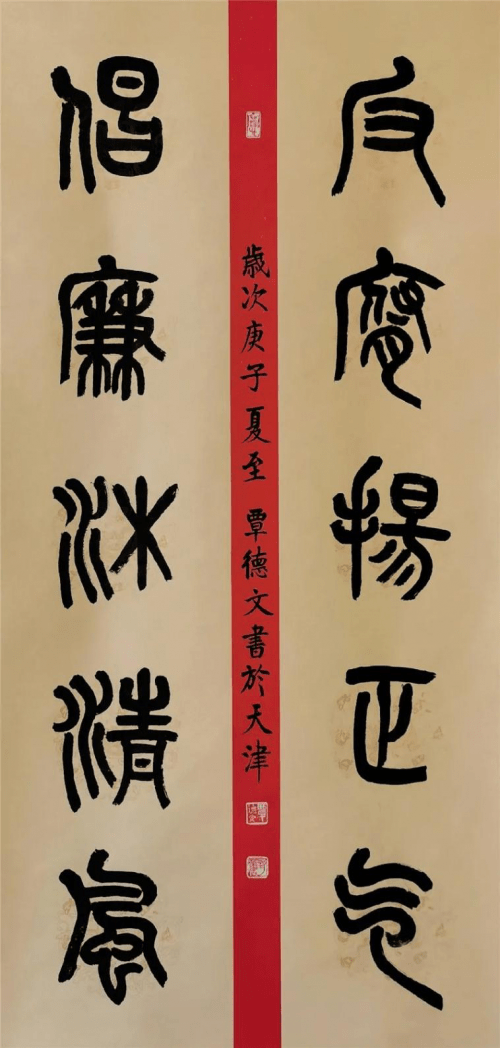 反腐揚正气
歲次庚子夏至 覃德文書於天津
倡廉沐清風